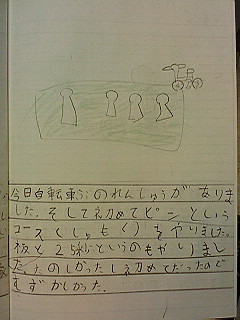 今日自転車の のれんしゅうがありま
した。そして初めてピンという
コース(しゅもく)をやりました。
板と25秒というのもやりまし
た。たのしかったし初めてだったので
むずかしかった。